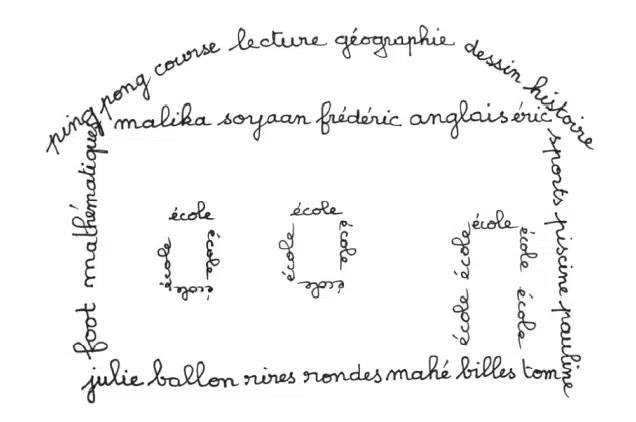 ping pong course lecture géographie dessin histoire
malika soyaan frédéric anglais éric
foot mathématiques
sports piscine pauline
école
école
école
école
école
école
école
école
école
école
école
école
école
julie ballon rires rondes mahé billes tom